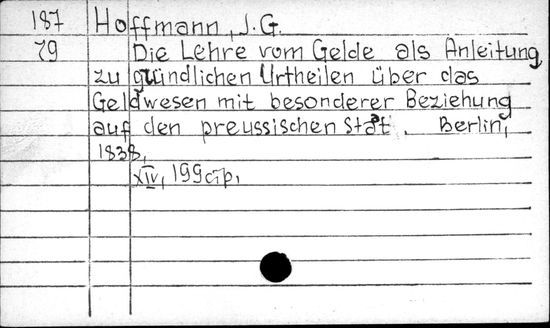 187 Hoffmann, J.G.
79 Die Lehre vom Gelde als Anleitung
zu gründlichen Urtheilen über das
Geldwesen mit besonderer Beziehung
auf den preussischen Staat. Berlin,
1838,
XIV, 199 стр.